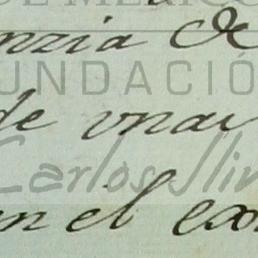 DE MÉXICO
enzia de
FUNDACIÓ
de vnas
Carlos Slim
en el